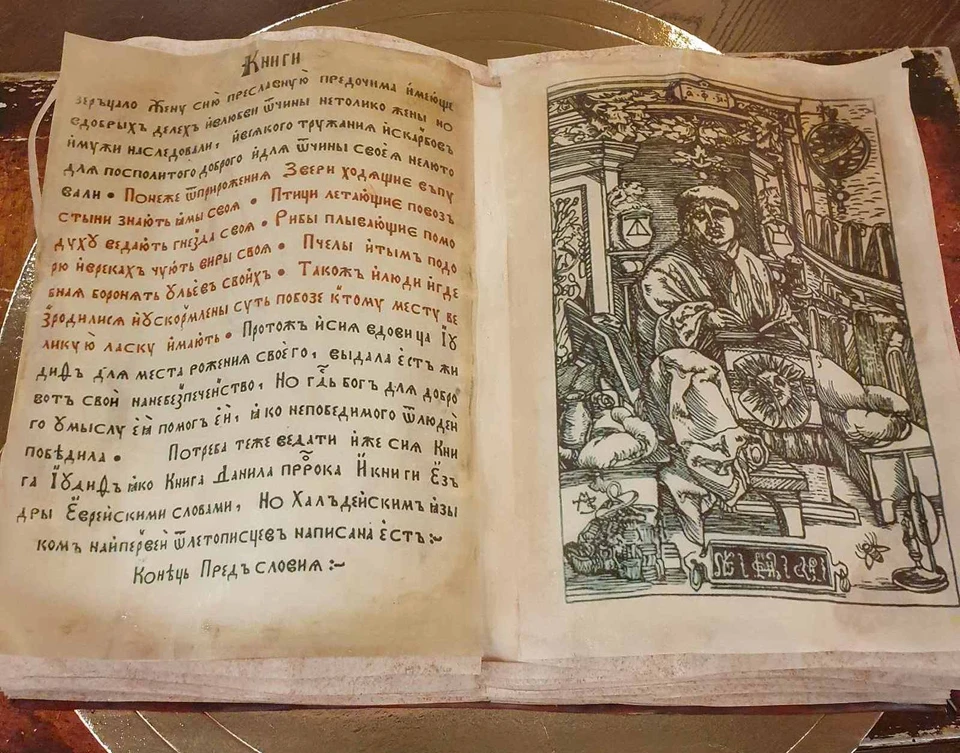 Книги
зеръцало Жену сию преславную предочима имеюще
вдобрыхъ делехъ ивлюбви ѿчины нетолико жены но
ймужи наследовали, ивсякого тружания йскарбовъ
для посполитого доброго йдля ѿчины своея нелюто
вали • Понеже ѿприрожения Звери ходящие въпу
стыни знають ямы своя • Птици летающие повозъ
духу ведають гнезда своя • Рибы плывающие помо
рю йвреках чують виры своя • Пчелы йтымъ подо
бная боронять ульевъ своихъ • Такожъ йлюди игде
зродилися йускормлены суть побозе ктому месту ве
ликую ласку ймають • Протожъ йсия вдовица Іу
диѳъ для места рожения своего, выдала єсть жи
вотъ свой нанебезпеченство, Но гдь богъ для добро
го умыслу ея помогъ ей, яко непобедимого ѿлюдей
победила • Потреба теже ведати иже сия Кни
га Іудиѳъ яко Книга Данила пррока Й книги Ёзъ
дры Ёврейскими словами, Но Халъдейскимъ язы
комъ найпервей ѿлетописцевъ написана єсть:~
Конѣць Предъсловия :~